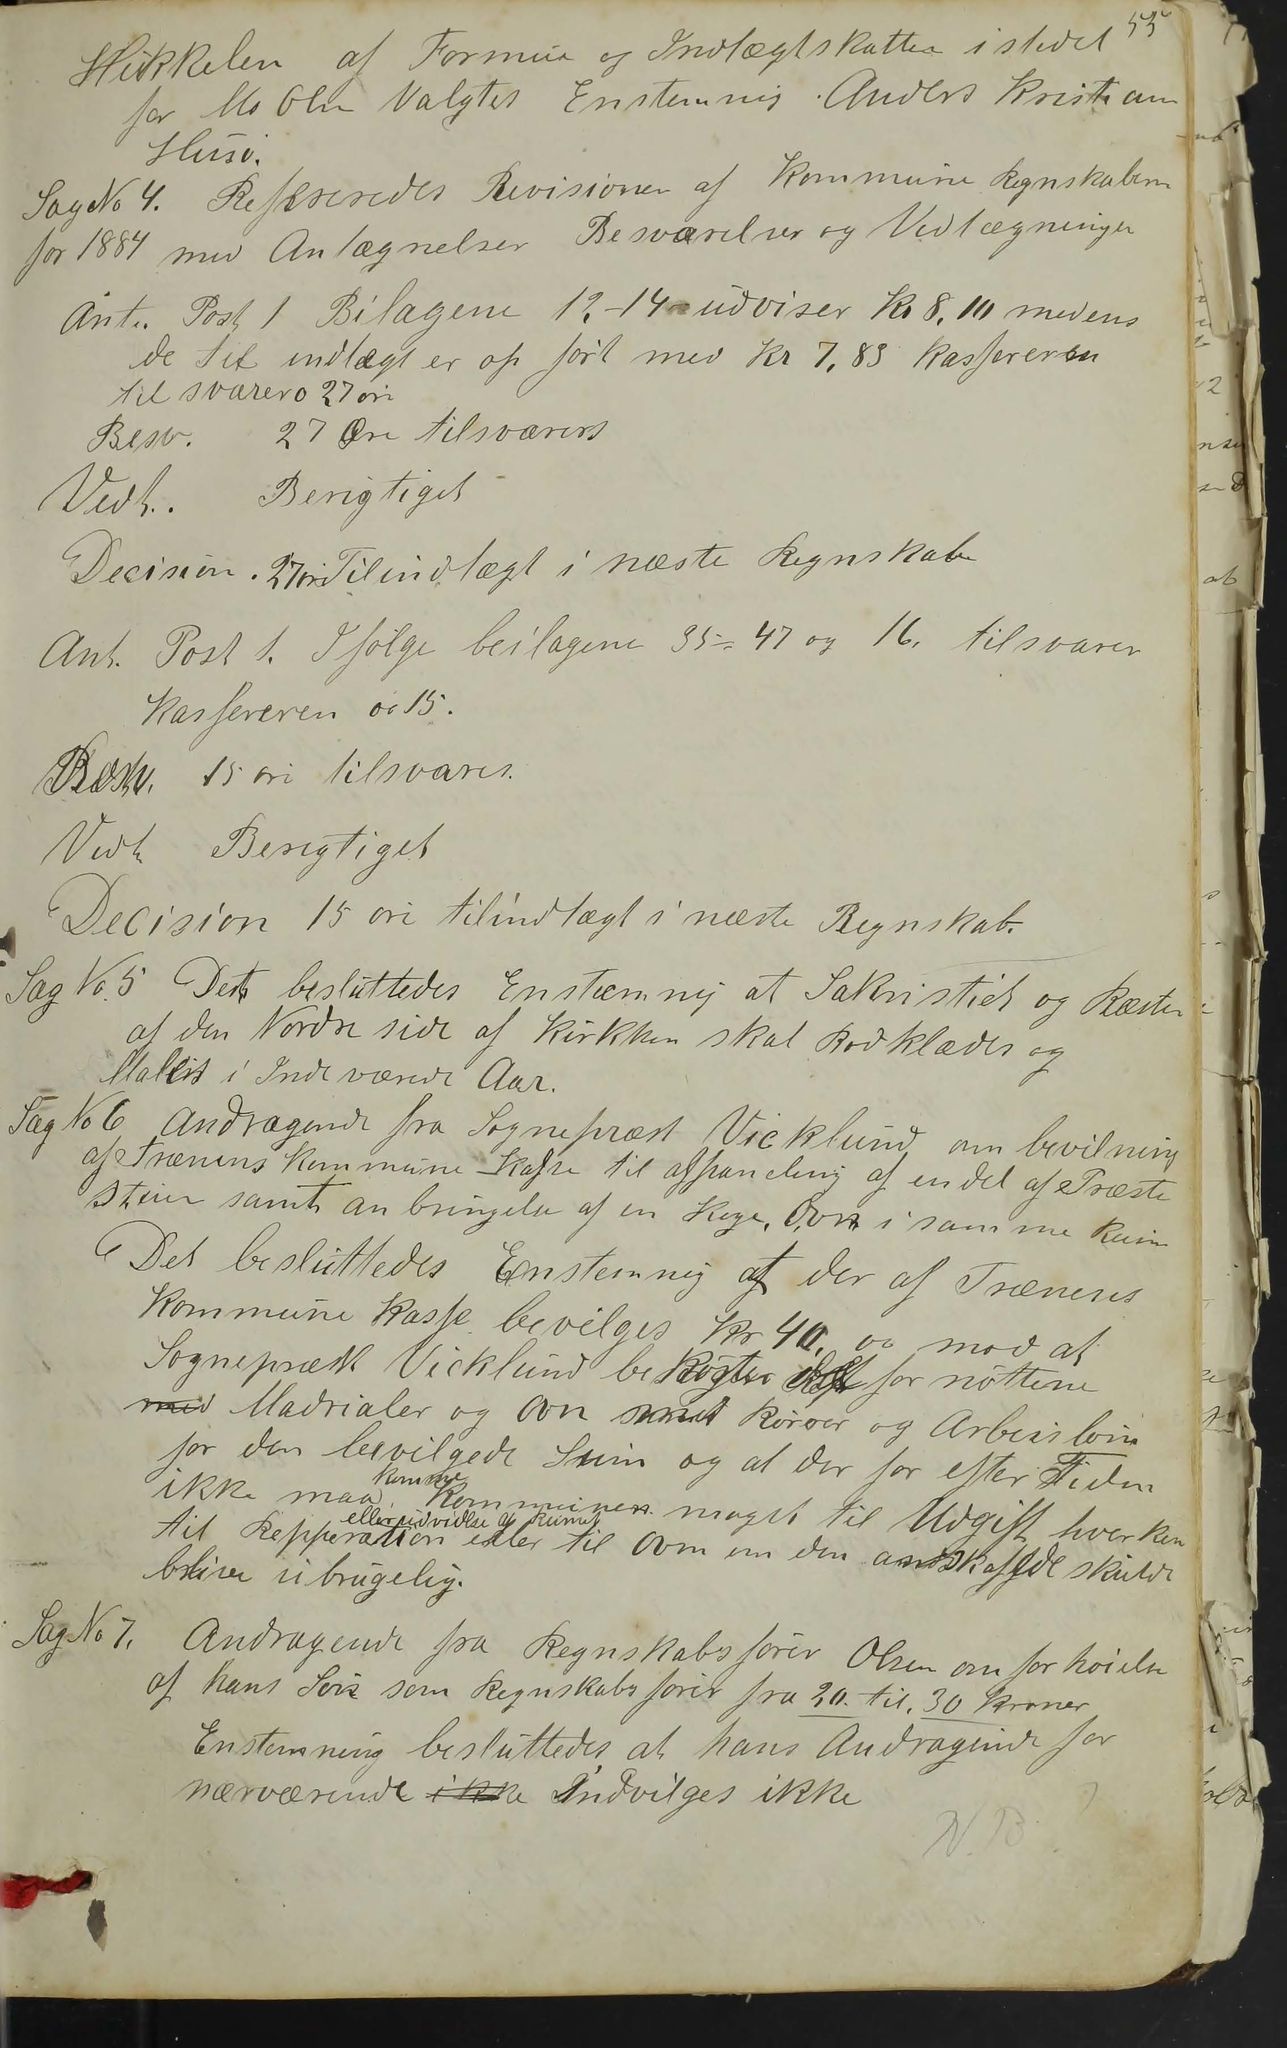 55
Skikkelen af Formue og Indtægtskatten istedet
for Ms Olsen Valgtes Enstemmig Anders Kristian
Husø.
Sag No 4. Refereredes Revisionen af Kommune Regnskabern
for 1884 med Antegnelser Besvarelser og Vedtegninger
Ant. Post 1 Bilagene 12-14 udviser Kr 8,10 medens
de til indtægt er op ført med Kr 7,83 Kassereren
til svarer o 27 øre
Besv. 27 Øre tilsvarers
Vedt. Berigtiget
Decision. 27 øre Tilindtægt i næste Regnskab
Ant. Post 1. Ifølge beilagene 35-47 og 16. tilsvarer
Kassereren oc 15.
Besv. 15 øre tilsvares.
Vedt Berigtiget
Decision 15 øre tilindtægt i næste Regnskab.
Sag No. 5 Det besluttedes Enstemmig at Sakristiet og Resten
af den Nordre side af Kirkken skal Bodklædes og
Males i Indeværende Aar.
Sag No 6 Andragende fra Sognepræst Vicklund om bevilning
af Trænens Kommune Kasse til afpaneling af en del af Præste
stuen samt an bringelse af en Koge. Ovn i samme Rum
Det besluttedes Enstemmig at der af Trænens
Kommune Kasse bevilges Kr 40. oo mod at
Sognepræst Vicklund bekoster det for nøttene
med Madrialer og Ovn samt Rörer og Arbeisløn
for den bevilgede Sum og at der for efter Tiden
komme
ikke maa Kommunen noget til Udgift hverken
eller udvidelse af Rummet
til Repperation eller til Ovn om den anskaffede skulde
bliver ubrugelig.
Sag No 7. Andragende fra Regnskabsfører Olsen om for høielse
af hans Løn som Regnskabsfører fra 20. til. 30 Kroner
Enstemmig besluttedes at hans Andragende for
nærværende ikke Indvilges ikke
N.B.